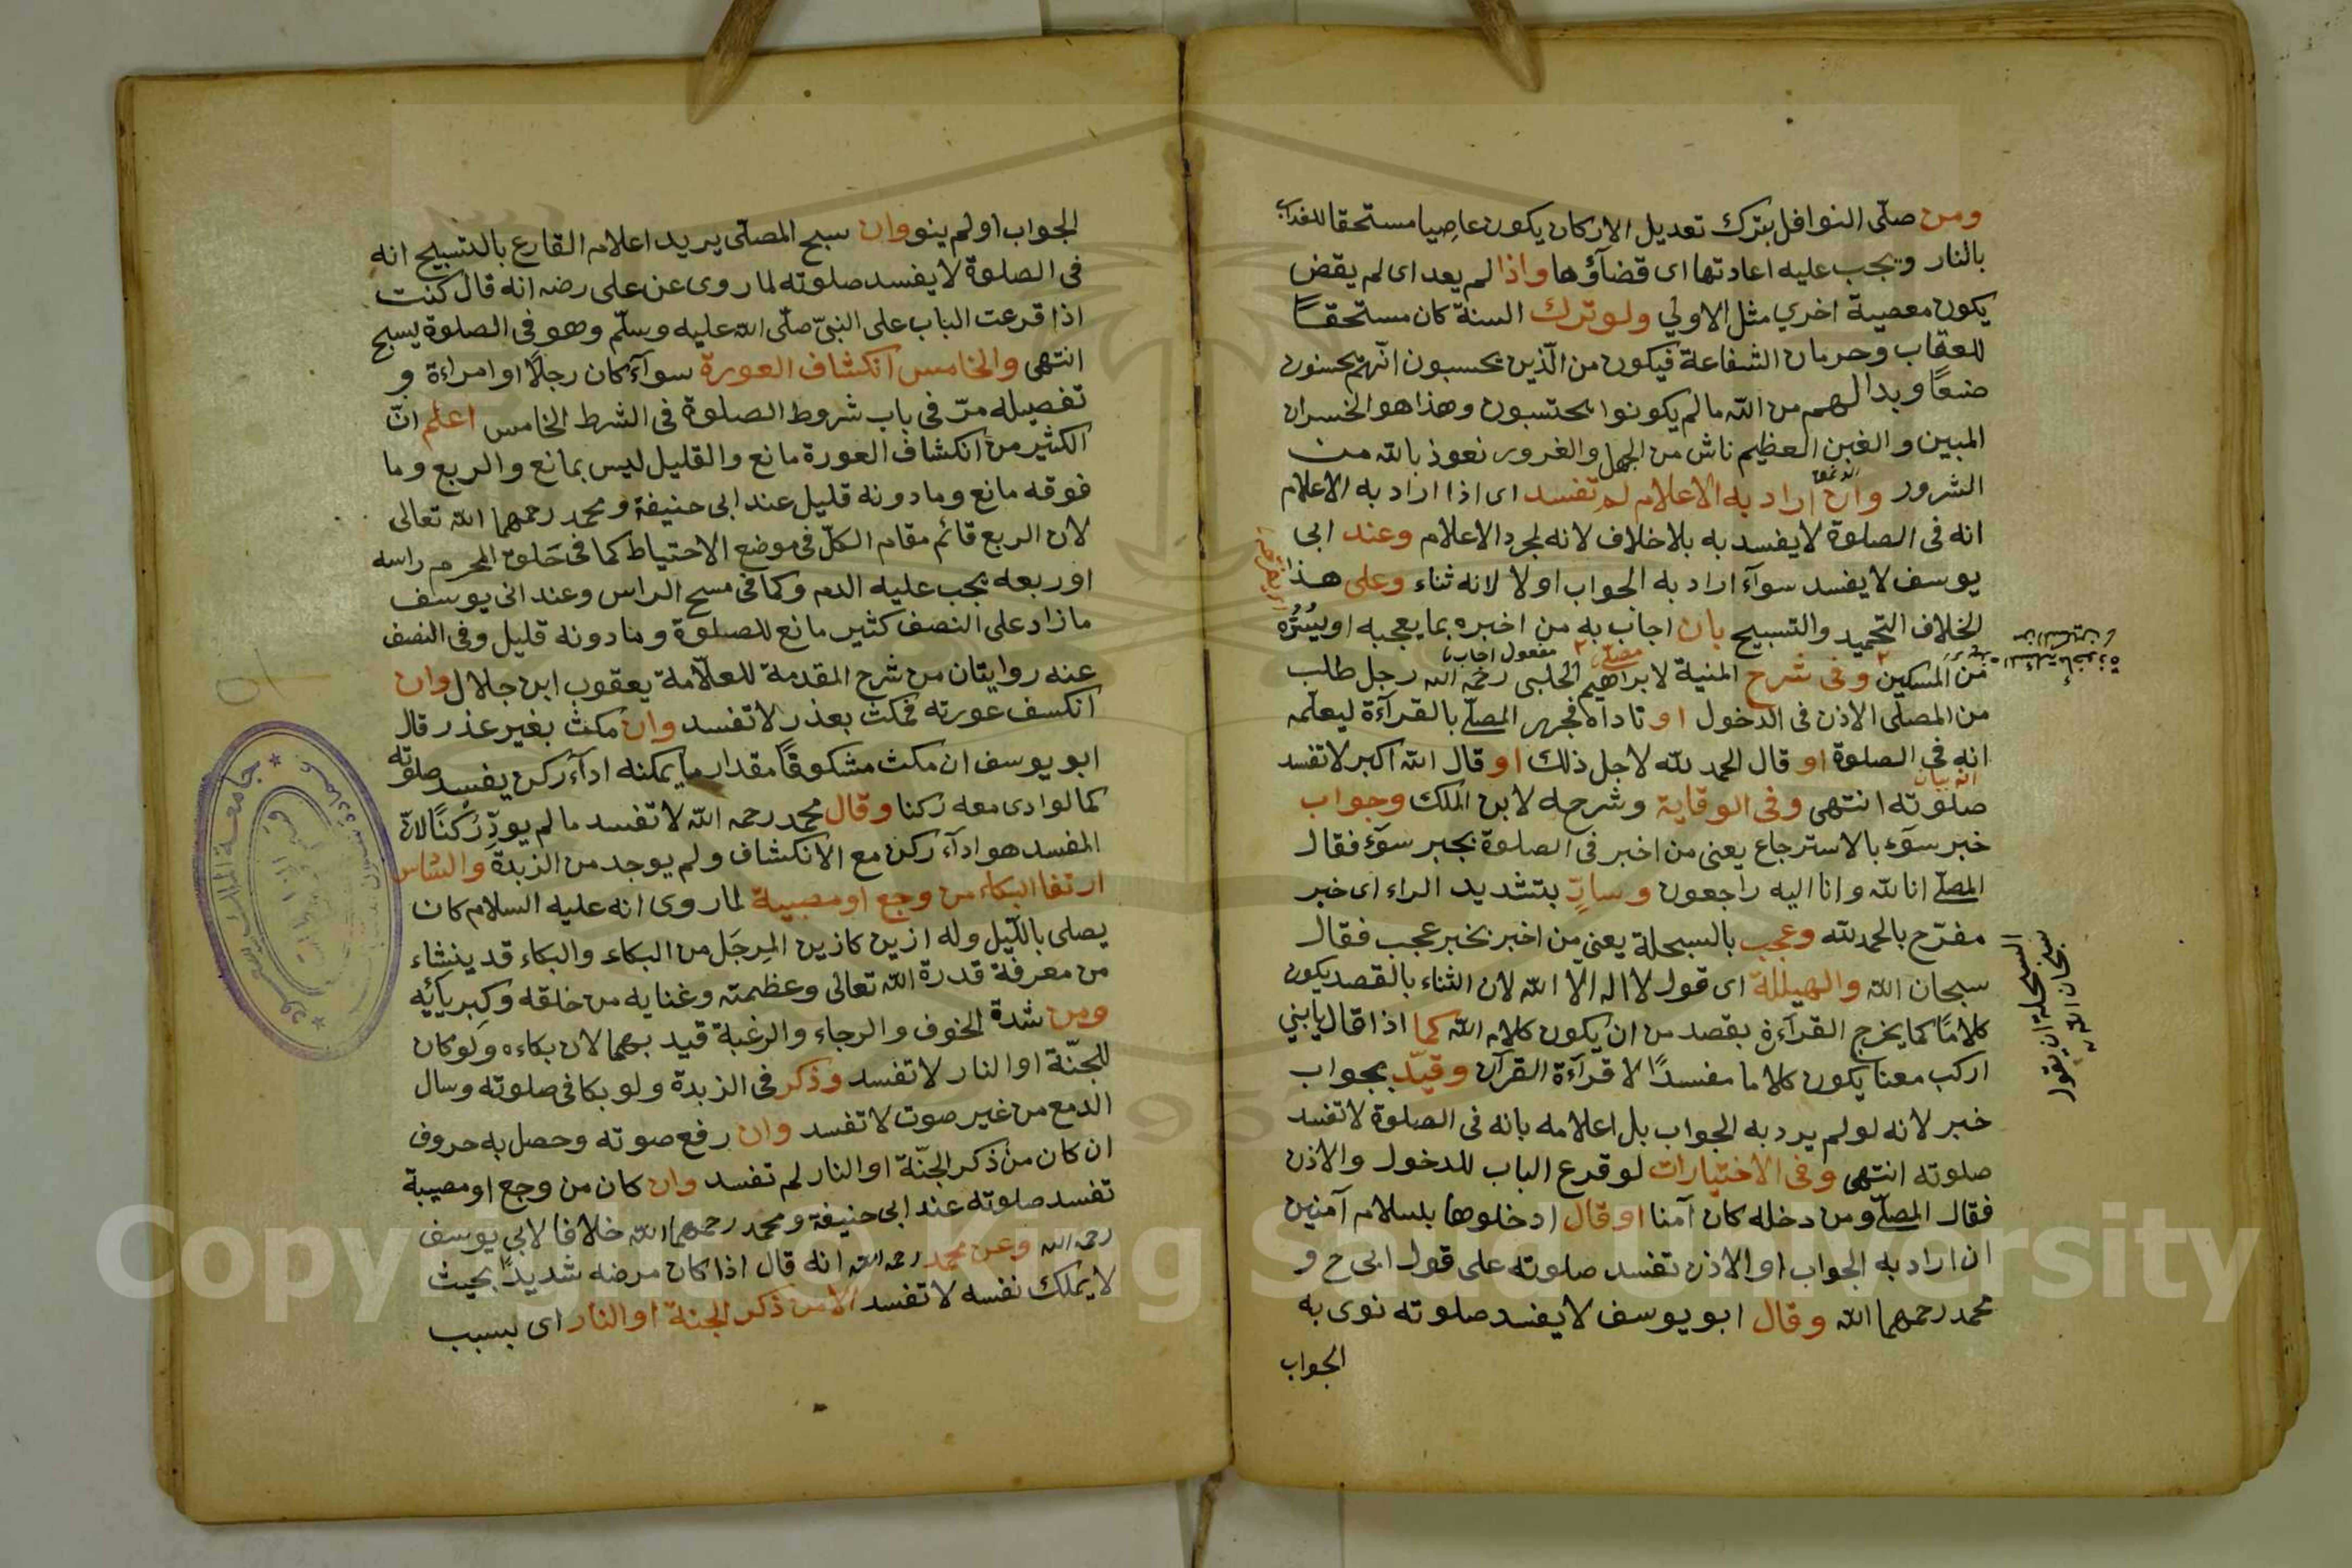 ومن صلّى النوافل بترك تعديل الاركان يكون عاصيا مستحقا للعذاب
بالنار ويجب عليه اعادتها اى قضآؤها واذا لم يعد اى لم يقض
يكون معصية اخري مثل الاولي ولو ترك السنة كان مستحقًا
للعقاب وحرمان الشفاعة فيكون من الّذين يحسبون انّهم يحسنون
صنعًا وبدا لهم من الله مالم يكونوا يحتسبون وهذا هو الخسران
المبين والغبن العظيم ناش من الجهل والغرور نعوذ بالله من
الشرور وان اراد به الاعلام لم تفسد اى اذا اراد به الاعلام
انه فى الصلوة لا يفسد به بلا خلاف لانه لمجرد الاعلام وعند ابى
يوسف لا يفسد سوآء اراد به الجواب او لا لانه ثناء وعلى هذا
الخلاف التحميد والتسبيح بان اجاب به من اخبره بما يعجبه او يسُرُّه
مفعول اجاب
من المسكين وفى شرح المنية لابراهيم الحلبى رحمه الله رجل طلب
من المصلّى الاذن فى الدخول او ناداه فجهر المصلّے بالقرآءة ليعلّمه
انه فى الصلوة او قال الحمد لله لاجل ذلك او قال الله اكبر لا تفسد
صلوته انتهى وفى الوقاية وشرحه لابن الملك وجواب
خبر سوَء بالاسترجاع يعنى من اخبر فى الصلوة بخبر سوَء فقال
المصلّے انا لله وانا اليه راجعون وسارّ بتشديد الراء اى خبر
مفرّح بالحمد لله وعجب بالسبحلة يعنى من اخبر بخبر عجب فقال
سبحان الله والهيللة اى قول لا اله الا الله لان الثناء بالقصد يكون
كلامًا كما يخرج القرآءة بقصد من ان يكون كلام الله كما اذا قال يا بني
اركب معنا يكون كلاما مفسدًا لا قرآءة القرآن وقيّد بجواب
خبر لانه لو لم يرد به الجواب بل اعلامه بانه فى الصلوة لا تفسد
صلوته انتهى وفى الاختيارات لو قرع الباب للدخول والاذن
فقال المصلّے ومن دخله كان آمنا او قال ادخلوها بسلام آمنين
ان اراد به الجواب او الاذن تفسد صلوته على قول ابى ح و
محمد رحمهما الله وقال ابو يوسف لا يفسد صلوته نوى به
الجواب
السبحلة ان يقول
سبحان الله
الجواب او لم ينو وان سبح المصلّى يريد اعلام القارع بالتسبيح انه
فى الصلوة لا يفسد صلوته لما روى عن على رضه انه قال كنت
اذا قرعت الباب على النبىّ صلّى الله عليه وسلّم وهو فى الصلوة يسبح
انتهى والخامس انكشاف العورة سوآء كان رجلًا او امراءة و
تفصيله مرّ فى باب شروط الصلوة فى الشرط الخامس اعلم انّ
الكثير من انكشاف العورة مانع والقليل ليس بمانع والربع وما
فوقه مانع وما دونه قليل عند ابى حنيفة ومحمد رحمهما الله تعالى
لان الربع قائم مقام الكلّ فى موضع الاحتياط كما فى حَلق المحرم راسه
او ربعه يجب عليه الدم وكما فى مسح الراس وعند ابى يوسف
ما زاد على النصف كثير مانع للصلوة وما دونه قليل وفى النصف
عنه روايتان من شرح المقدمة للعلّامة يعقوب ابن جلال وان
انكسف عورته فمكث بعذر لا تفسد وان مكث بغير عذر قال
ابو يوسف ان مكث مشكوفًا مقدار ما يمكنه ادآء ركن يفسد صلوته
كما لو ادى معه ركنا وقال محمد رحمه الله لا تفسد ما لم يودِّ رُكنًا لانّ
المفسد هو ادآء ركن مع الانكشاف ولم يوجد من الزبدة والسادس
ارتفا البكاء من وجع او مصيبة لما روى انه عليه السلام كان
يصلى بالّيل وله ازين كازين المِرجَل من البكاء والبكاء قد ينشاء
من معرفة قدرة الله تعالى وعظمته وغنايه من خلقه وكبريائِه
ومن شدة الخوف والرجاء والرغبة قيد بهما لان بكاءه ولو كان
للجنّة او النار لا تفسد وذكر فى الزبدة ولو بكا فى صلوته وسال
الدمع من غير صوت لا تفسد وان رفع صوته وحصل به حروف
ان كان من ذكر الجنّة او النار لم تفسد وان كان من وجع او مصيبة
تفسد صلوته عند ابى حنيفة ومحمد رحمهما الله خلافا لابي يوسف
رحمه الله وعن محمد رحمه الله انه قال اذا كان مرضه شديدًا بحيث
لا يملك نفسه لا تفسد الا من ذكر الجنة او النار اى بسبب
جامعة الملك سعود
Copyright © King Saud University